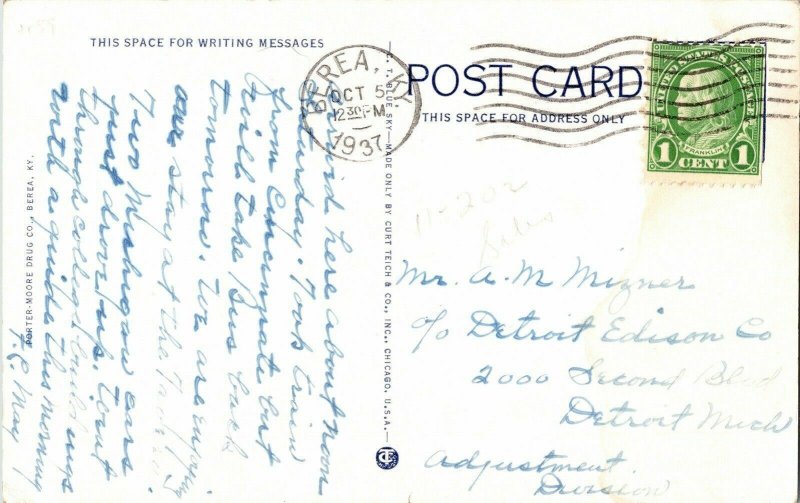 THIS SPACE FOR WRITING MESSAGES
Arrived here about noon
Saturday. Took train
from Cincinnati but
will take Bus back
tomorrow. We are enjoying
our stay at the
Two Michigan cars
just drove up. Went
through college buildings
with a guide this morning
PORTER-MOORE DRUG CO., BEREA, KY.
C. T. BLUE SKY—MADE ONLY BY CURT TEICH & CO., INC., CHICAGO, U.S.A.
BEREA, KY.
OCT 5
1230PM
1937
POST CARD
THIS SPACE FOR ADDRESS ONLY
FRANKLIN
1 CENT 1
11-202
Mr. A. M. Mizner
c/o Detroit Edison Co
2000 Second Blvd
Detroit Mich
Adjustment
Division